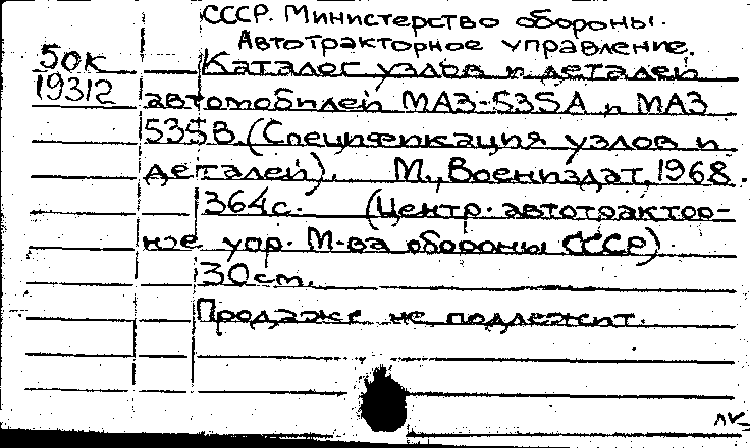 СССР. Министерство обороны.
Автотракторное управление.
50к
Каталог узлов и деталей
19312
автомобилей МАЗ-535А и МАЗ
535В. (Спецификация узлов и
деталей). М., Воениздат, 1968.
364с. (Центр. автотрактор-
ное упр. М-ва обороны СССР).
30см.
Продаже не подлежит.